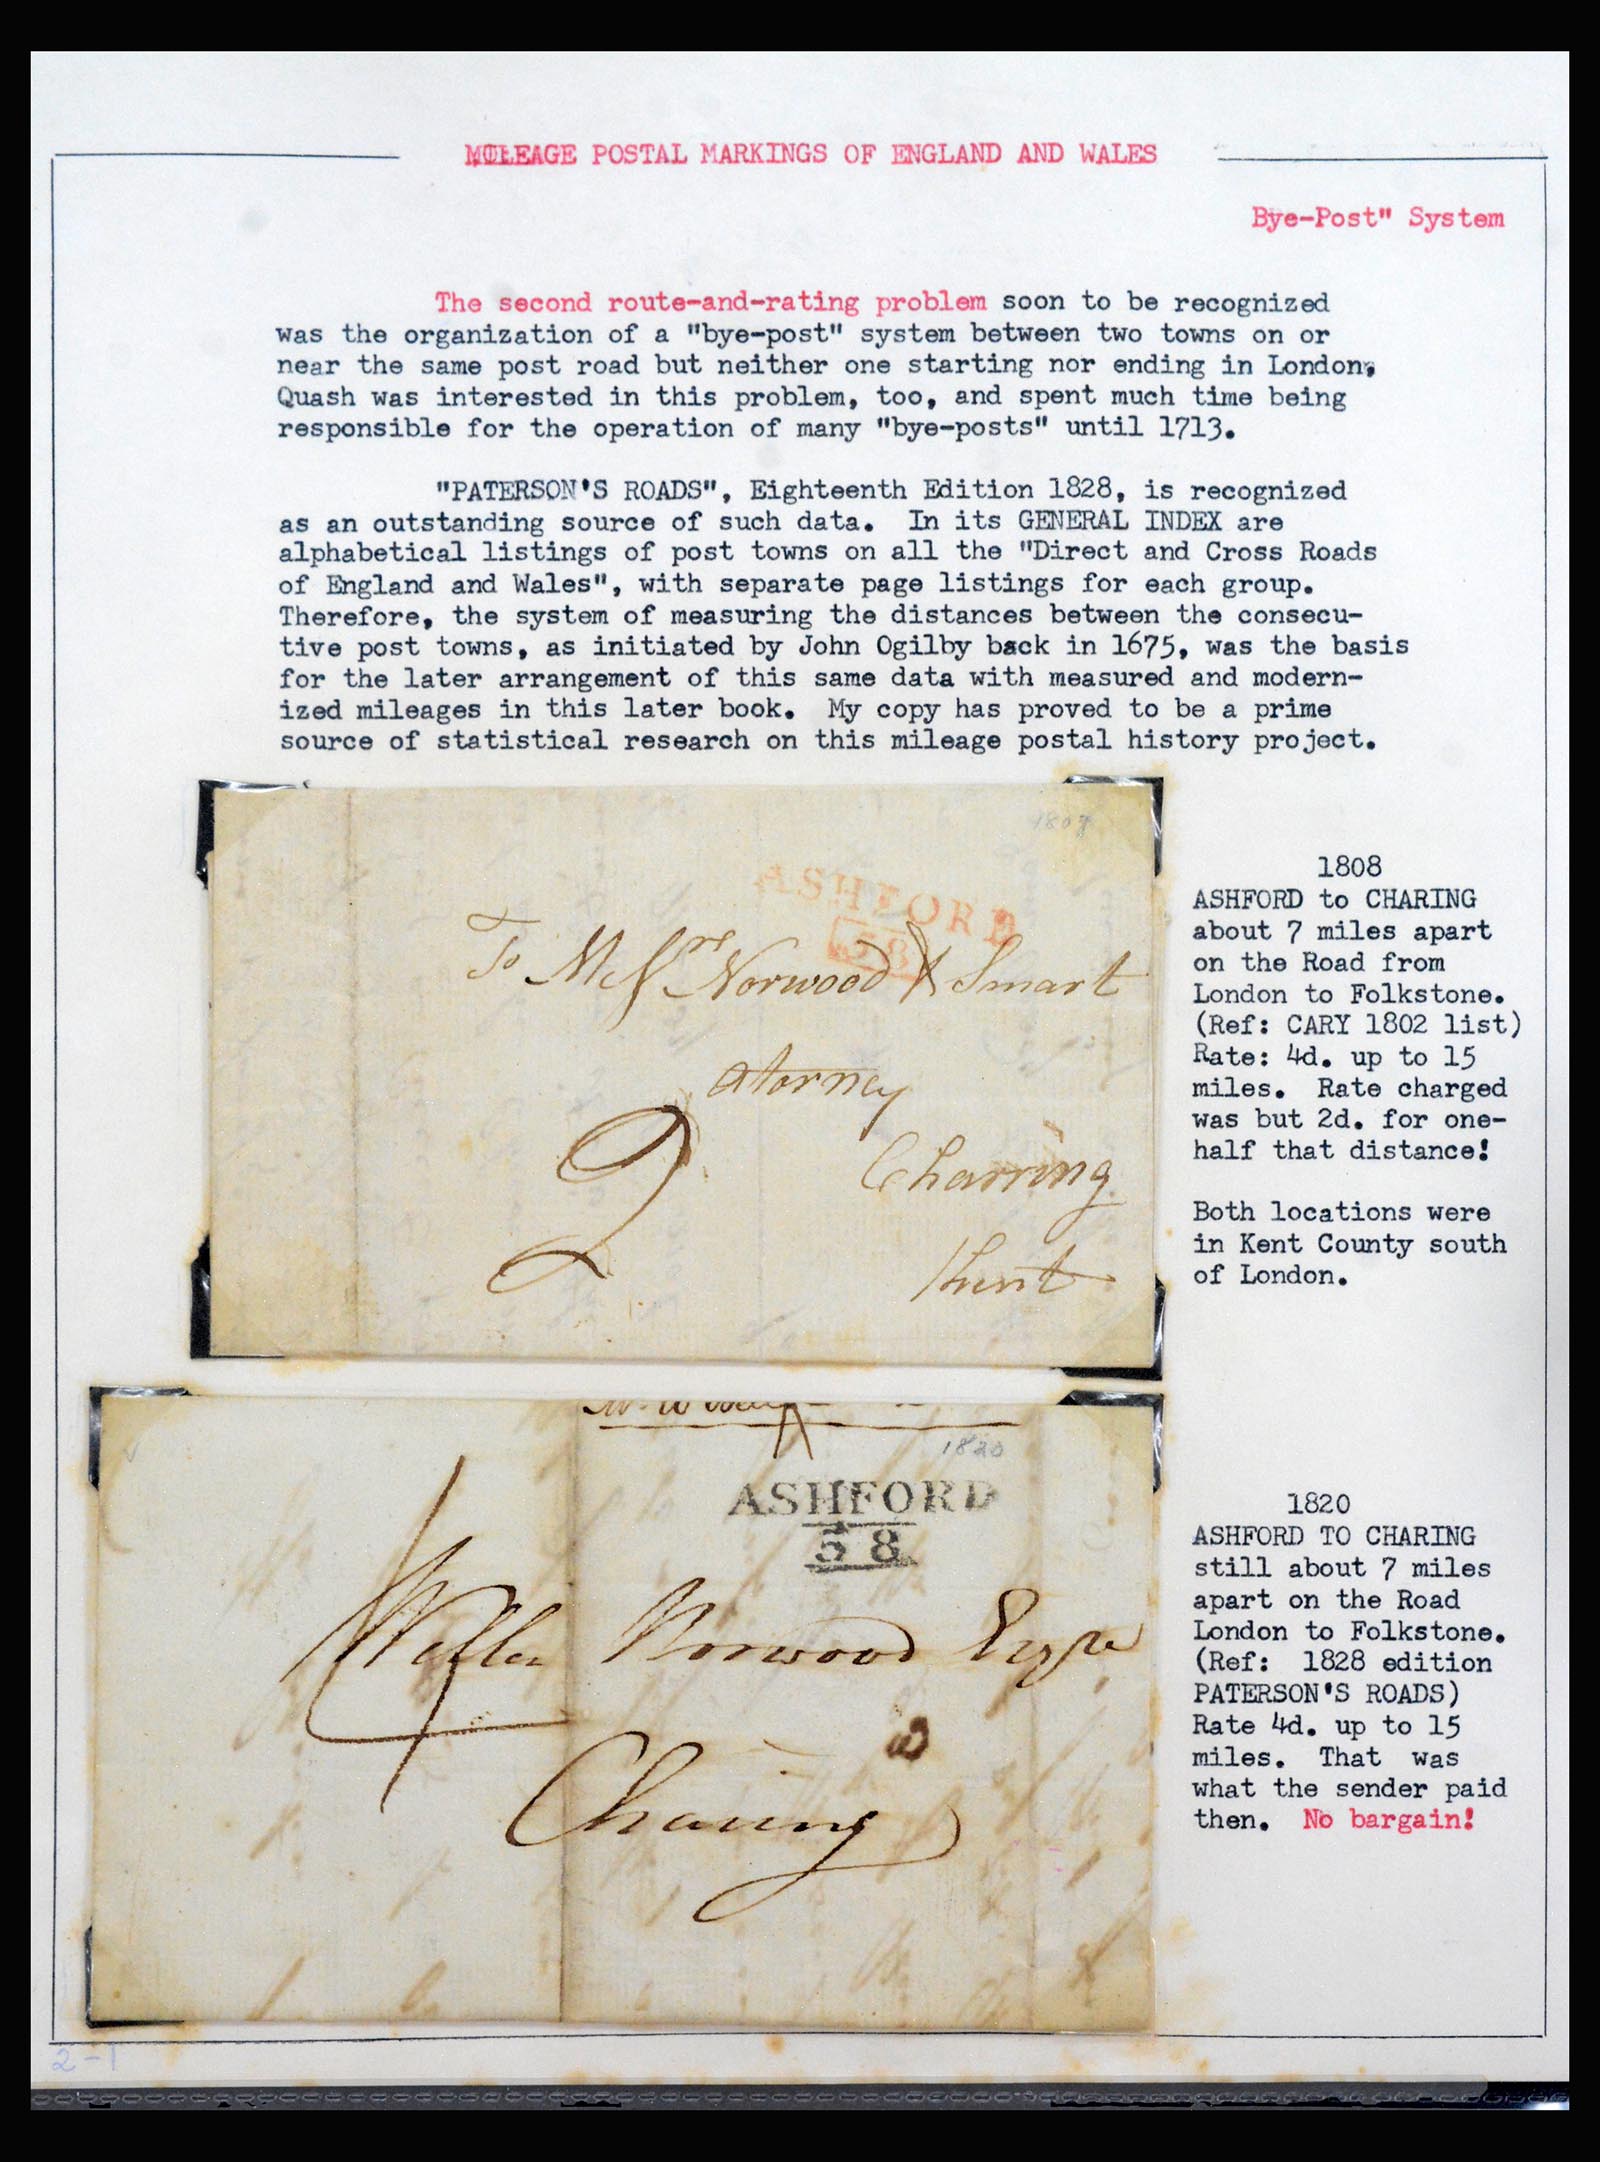 MILEAGE POSTAL MARKINGS OF ENGLAND AND WALES
Bye-Post" System
The second route-and-rating problem soon to be recognized
was the organization of a "bye-post" system between two towns on or
near the same post road but neither one starting nor ending in London,
Quash was interested in this problem, too, and spent much time being
responsible for the operation of many "bye-posts" until 1713.
"PATERSON'S ROADS", Eighteenth Edition 1828, is recognized
as an outstanding source of such data. In its GENERAL INDEX are
alphabetical listings of post towns on all the "Direct and Cross Roads
of England and Wales", with separate page listings for each group.
Therefore, the system of measuring the distances between the consecu-
tive post towns, as initiated by John Ogilby back in 1675, was the basis
for the later arrangement of this same data with measured and modern-
ized mileages in this later book. My copy has proved to be a prime
source of statistical research on this mileage postal history project.
ASHFORD
58
To Mssrs Norwood & Smart
atorney
2
Charring
Kent
1808
ASHFORD to CHARING
about 7 miles apart
on the Road from
London to Folkstone.
(Ref: CARY 1802 list)
Rate: 4d. up to 15
miles. Rate charged
was but 2d. for one-
half that distance!
Both locations were
in Kent County south
of London.
1820
ASHFORD
58
4
Norwood Esqre
Charing
1820
ASHFORD TO CHARING
still about 7 miles
apart on the Road
London to Folkstone.
(Ref: 1828 edition
PATERSON'S ROADS)
Rate 4d. up to 15
miles. That was
what the sender paid
then. No bargain!
2-1